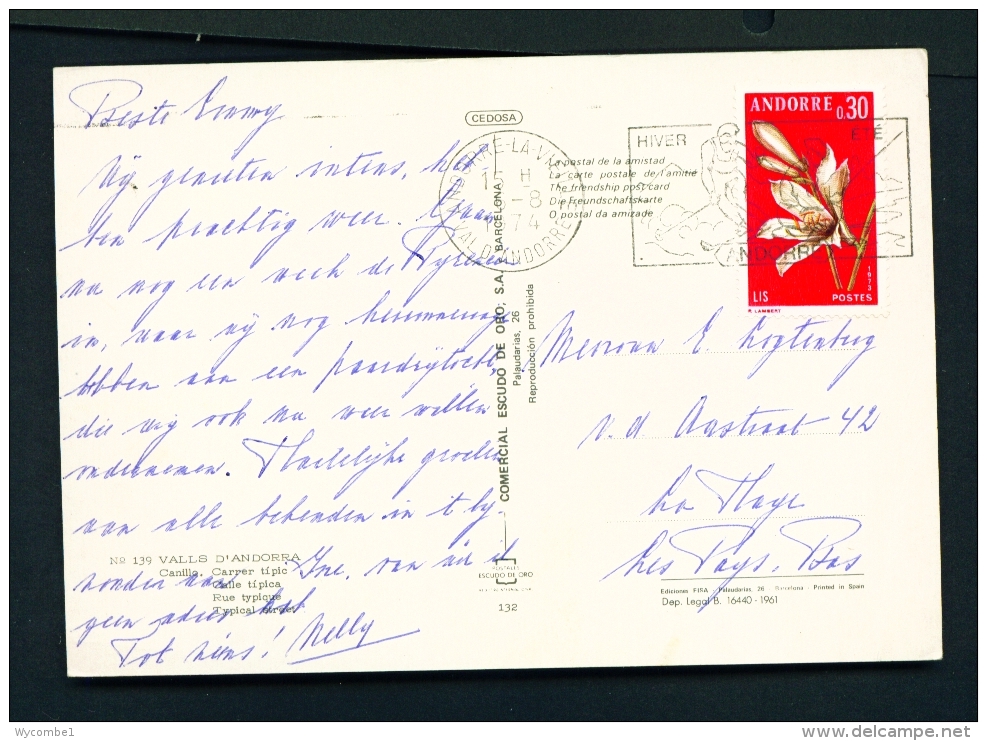 Beste Emmy
Wij genieten intens, heb
ben prachtig weer. Gaan
nu nog een week de Pyreneeën
in, waar wij nog herinneringen
hebben aan een paardrijtocht,
die wij ook nu weer willen
ondernemen. Hartelijke groeten
aan alle bekenden in 't bij-
zonder aan Ine, van wie ik
geen adres heb.
Tot ziens! Nelly
Nº 139 VALLS D'ANDORRA
Canillo. Carrer típic
Calle típica
Rue typique
Typical street
CEDOSA
La postal de la amistad
La carte postale de l'amitié
The friendship postcard
Die Freundschaftskarte
O postal da amizade
COMERCIAL ESCUDO DE ORO, S.A. BARCELONA
Palaudarias, 26
Reproducción prohibida
POSTALES
ESCUDO DE ORO
132
ANDORRE-LA-VIEILLE
H
1-8
1974
VAL D'ANDORRE
HIVER
ÉTÉ
ANDORRE
ANDORRE 0,30
LIS
POSTES
1973
P. LAMBERT
Mevrouw E.
v.d. Aastraat 42
La Haye
Les Pays-Bas
Ediciones FISA - Palaudarias, 26 - Barcelona - Printed in Spain
Dep. Legal B. 16440 - 1961
Wycombe1